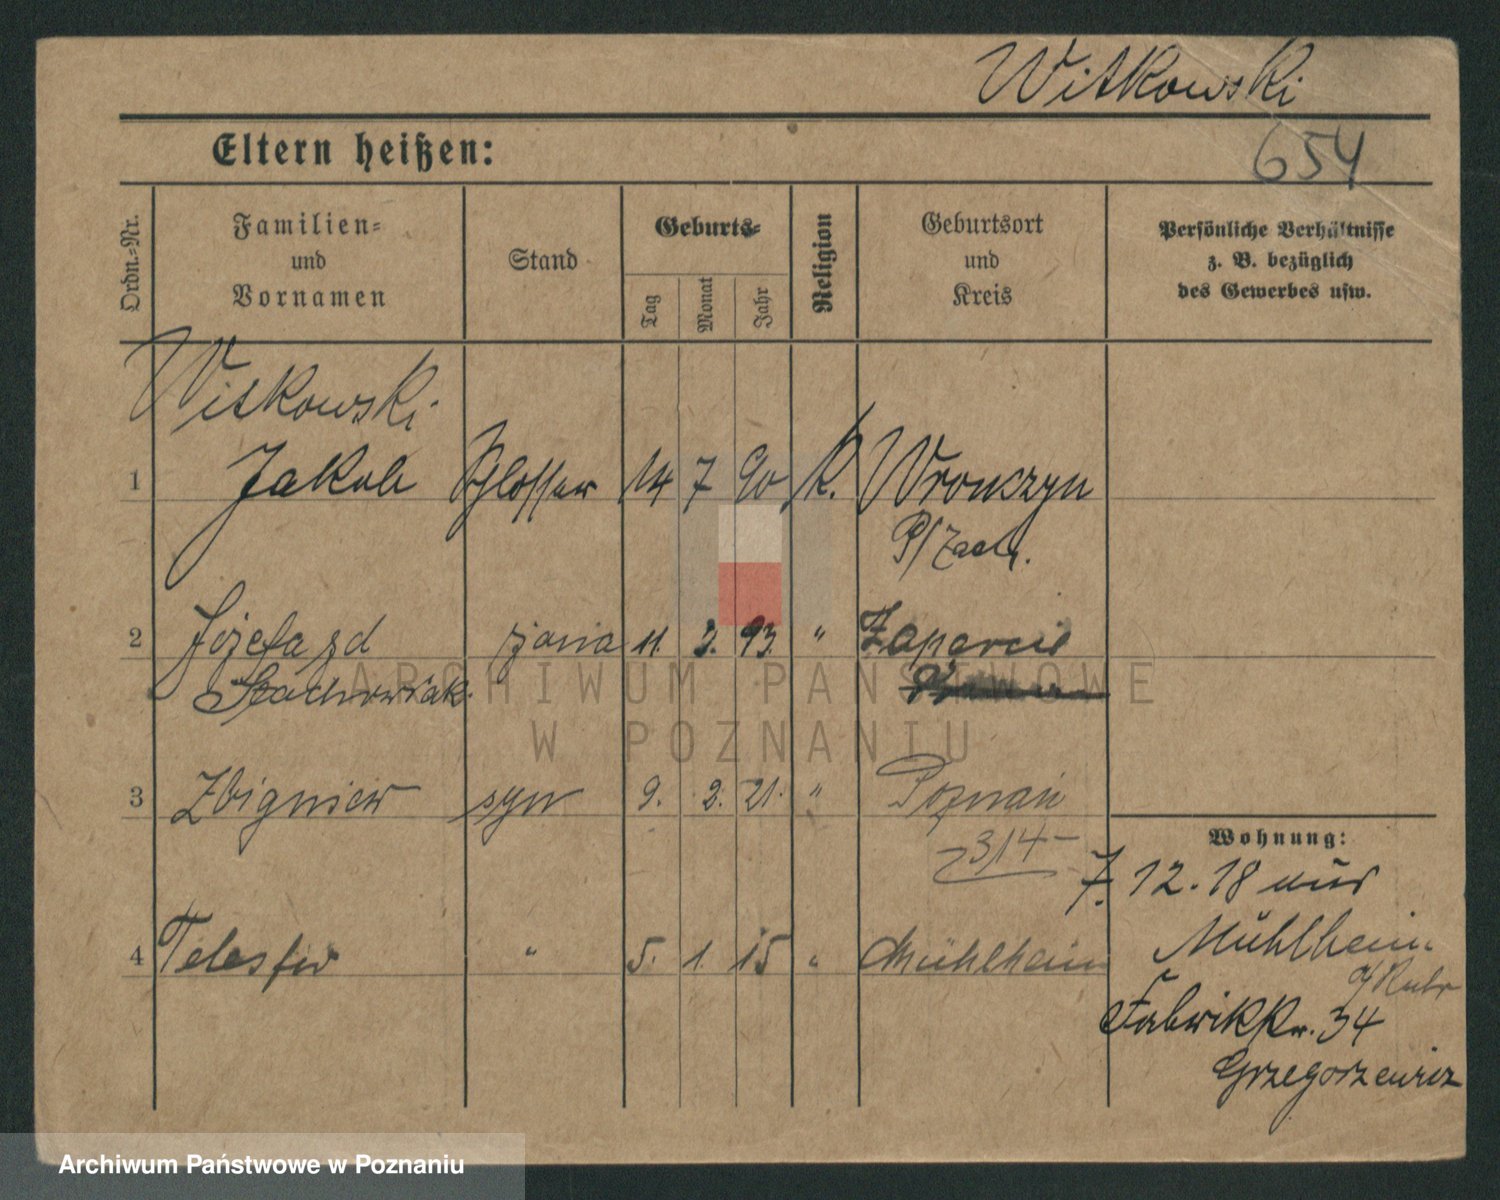 Witkowski
654
Eltern heißen:
Ordn.=Nr.
Familien=
und
Vornamen
Stand
Geburts=
Tag
Monat
Jahr
Religion
Geburtsort
und
Kreis
Persönliche Verhältnisse
z. B. bezüglich
des Gewerbes usw.
Witkowski
1 Jakob Schlosser 14 7 90 k. Wronczyn
P/Zach.
2 Józefa zd żona 11. 2. 93. " Zaparcin
Stachowiak.
ARCHIWUM PAŃSTWOWE
W POZNANIU
3 Zbigniew syn 9. 2. 21. " Poznań
314-
Wohnung:
7. 12. 18 aus
Mühlheim
a/Ruhr
4 Telesfor " 5. 1. 15 " Mühlheim
Fabrikstr. 34
Grzegorzewicz
Archiwum Państwowe w Poznaniu